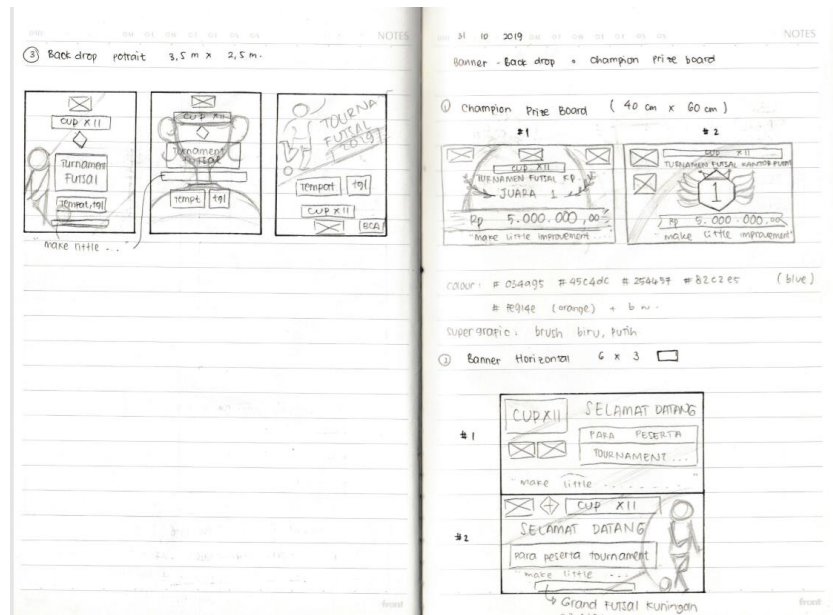 NOTES
③ Back drop potrait 3,5 m x 2,5 m.
CUP XII
Turnamen
Futsal
Tempat, tgl
"make little ..."
CUP XII
Turnamen
Futsal
Tempt tgl
TOURNA
FUTSAL
2019
Tempat tgl
CUP XII
BCA
31 10 2019
NOTES
Banner - Back drop • Champion Prize board
① Champion Prize Board (40 cm x 60 cm)
#1
CUP XII
TURNAMEN FUTSAL KP
JUARA 1
Rp 5.000.000,00
"make little improvement...
#2
CUP XII
TURNAMEN FUTSAL KANTOR
1
Rp 5.000.000,00
"make little improvement"
colour : # 034a95 # 45c4dc # 254457 # 82c2e5 (blue)
# fe914e (orange) + b w.
super grafic : brush biru, putih
② Banner Horizontal 6 x 3
#1
CUP XII
SELAMAT DATANG
PARA PESERTA
TOURNAMENT ...
"make little ........
#2
CUP XII
SELAMAT DATANG
para peserta tournament
"make little ...
Grand Futsal Kuningan
front
front